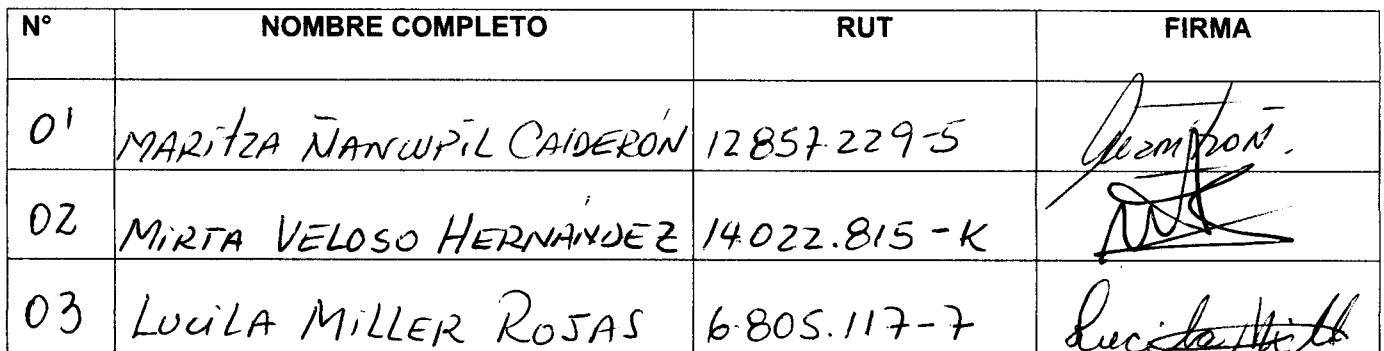 N° NOMBRE COMPLETO RUT FIRMA
01 MARITZA ÑANCUPIL CALDERÓN 12857.229-5
02 MIRTA VELOSO HERNÁNDEZ 14.022.815-K
03 LUCILA MILLER ROJAS 6.805.117-7 Lucila Mill